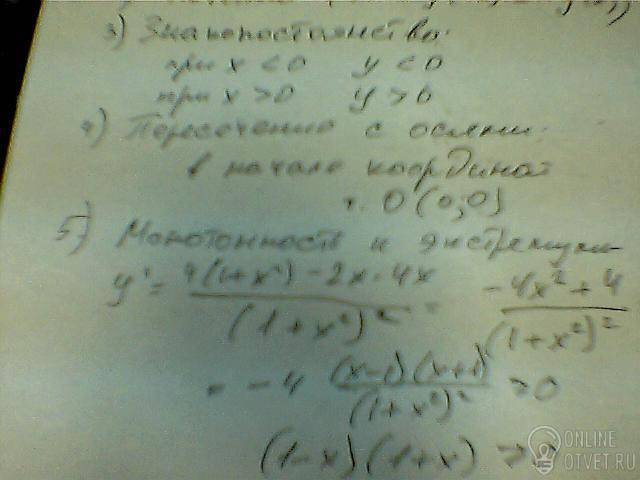 3) Знакопостоянство:
при x < 0 y < 0
при x > 0 y > 0
4) Пересечение с осями:
в начале координат
т. O (0;0)
5) Монотонность и экстремум
y' = 4(1+x²) - 2x · 4x / (1+x²)² = -4x² + 4 / (1+x²)²
= -4 (x-1)(x+1) / (1+x²)² > 0
(1-x)(1+x) > 0
ONLINE
OTVET.RU